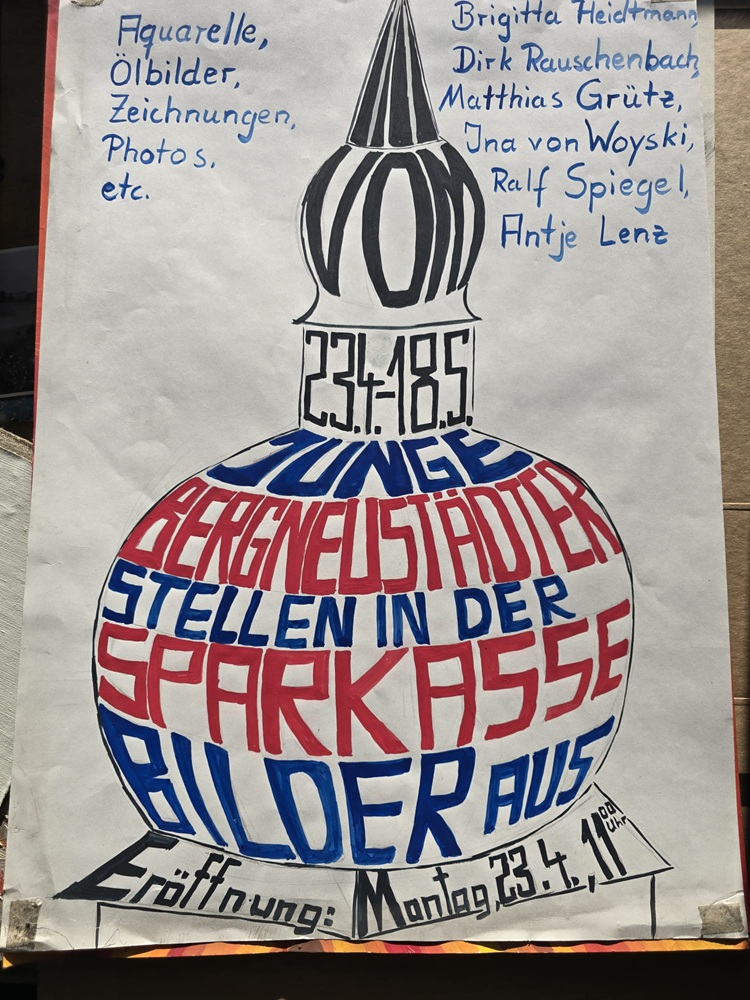 Aquarelle,
Ölbilder,
Zeichnungen,
Photos,
etc.
Brigitta Heidtmann,
Dirk Rauschenbach,
Matthias Grütz,
Ina von Woyski,
Ralf Spiegel,
Antje Lenz
VOM
23.4.-18.5.
JUNGE
BERGNEUSTÄDTER
STELLEN IN DER
SPARKASSE
BILDER AUS
Eröffnung: Montag, 23.4., 11 00 Uhr